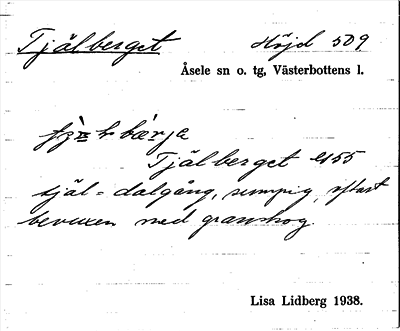 Tjälberget Höjd 509
Åsele sn o. tg, Västerbottens l.
Tjälberget el55
tjäl = dalgång, sumpig, oftast
bevuxen med granskog
Lisa Lidberg 1938.